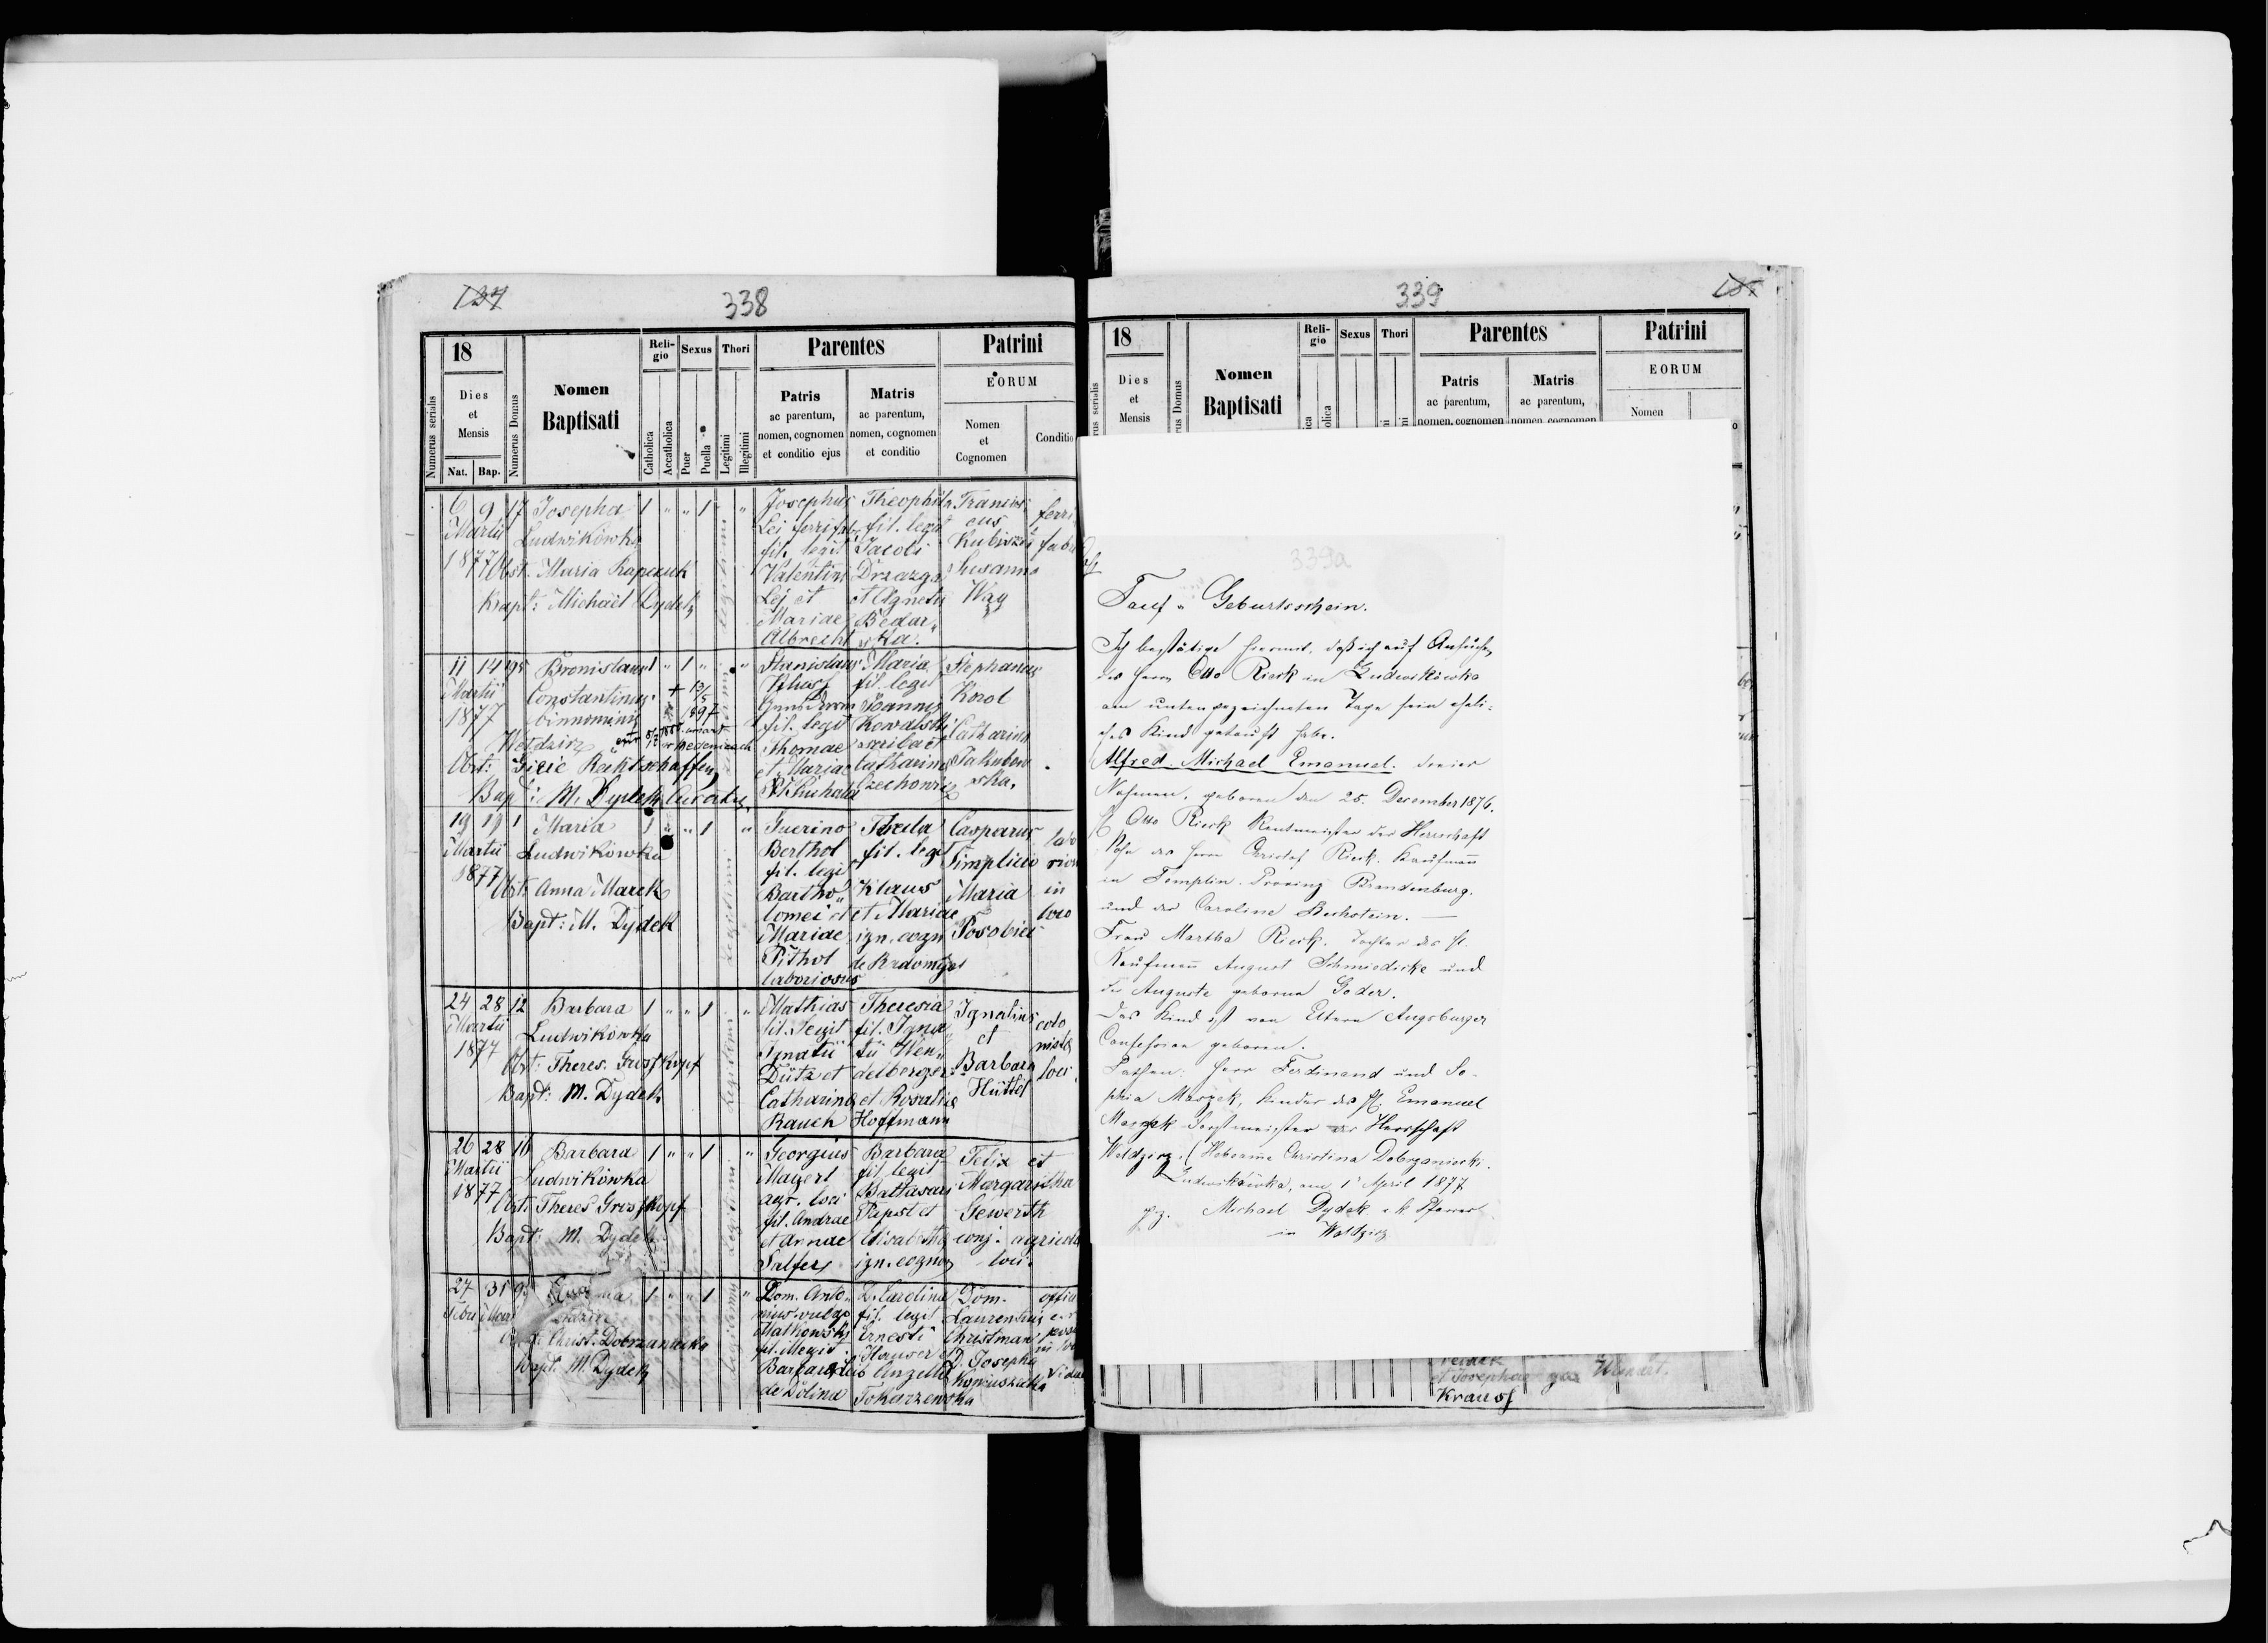 137
338
18
Dies
et
Mensis
Nat. Bap.
Numerus serialis
Numerus Domus
Nomen
Baptisati
Reli-
gio
Catholica
Accatholica
Sexus
Puer
Puella
Thori
Legitimi
Illegitimi
Parentes
Patris
ac parentum,
nomen, cognomen
et conditio ejus
Matris
ac parentum,
nomen, cognomen
et conditio
Patrini
EORUM
Nomen
et
Cognomen
Conditio
6 9 17 Josepha 1 " " 1 "
Martii Ludwikówka
1877 Obst. Maria Kapczuk
Bapt: Michaël Dydek
Josephus
Lej ferrifab.
fil. legit
Valentini
Lej et
Mariae
Albrecht
Theophila
fil. legit
Jacobi
Drzazga
et Agnetis
Bednar„
ska.
Francis
cus
Kubisz
Susanna
Way
ferri
fabr
11 14 195 Bronislaus 1 " 1 " "
Martii Constantinus
1877 binominis
Wełdzirz
+ 13/5
897
Obst: Gizie Rechtschaffen
Bap: M. Dydek Curatus
Stanislaus
Klus
fil. legit
Thomae
et Mariae
Maria
fil. legit
Joannis
Kowalski
scriba et
Catharina
Czechowicz
Stephanus
Korol
Catharina
Jakubow
ska.
19 19 1 Maria 1 " " 1 "
Martii Ludwikówka
1877 Obst: Anna Marek
Bapt: M. Dydek
Guerino
Berthol
fil. legi
Bartho„
lomei et
Mariae
Pithol
laboriosus
Thecla
fil. legit
Klaus
et Mariae
ign. cogn
de Radomysl
Casparus
Simplicio
Maria
Posobiec
labo
rios
in
loco
24 28 12 Barbara 1 " " 1 "
Martii Ludwikówka
1877 Obst: Theres. Grosskopf
Bapt: M. Dydek
Mathias
fil. legit
Ignatii
Dütz et
Catharina
Rauch
Theresia
fil. Igna„
tii Wen„
delberger
et Rosalia
Hoffmann
Ignatius
et
Barbara
Hüttel
colo
nista
loci.
26 28 16 Barbara 1 " " 1 "
Martii Ludwikówka
1877 Obst: Theres Grosskopf
Bapt: M. Dydek
Georgius
Mayerl
agr. loci
fil. Andrae
et Annae
Salfer
Barbara
fil. legit
Baltasari
Papst et
Elisabetha
ign. cognom
Felix et
Margaritha
Gewerth
conj. agricola
loci.
27 31 95 1 " " 1 "
Obst: Christ. Dobrzaniecka
Bapt: M. Dydek
Legitimi
Dom. Anto„
nius vulgo
Matkowski
fil. illegit.
Barbara
de Dolina
D. Carolina
fil. legit
Ernesti
Hauser et
Angela
Tokarzewska
Dom.
Laurentius
Christman
D. Josepha
Koniuszecka
Vidua
339
18
Dies
et
Mensis
Nomen
Baptisati
Reli-
gio
Sexus
Thori
Parentes
Patris
ac parentum,
nomen, cognomen
Matris
ac parentum,
nomen, cognomen
Patrini
EORUM
Nomen
339a
Tauf u Geburtsschein.
Ich bestätige hiermit, daß ich auf Ansuchen
des Herrn Otto Rieck in Ludwikówka
am untengezeichneten Tage sein eheli=
ches Kind getauft habe.
Alfred Michael Emanuel. dreier
Nahmen, geboren den 25. Dezember 1876.
H. Otto Rieck Rentmeister der Herrschaft
Sohn des Herrn Christof Rieck. Kaufmann
in Templin. Provinz Brandenburg.
und der Caroline Bechstein. —
Frau Martha Rieck. Tochter des H.
Kaufmann August Schmiedicke und
der Auguste geborne Goder.
Das Kind ist von Eltern Augsburger
Confession geboren.
Pathen: Herr Ferdinand und So-
phia Maszek, Kinder des H. Emanuel
Maszek Forstmeister der Herrschaft
Weldzirz. (Hebamme Christina Dobrzaniecki.
Ludwikówka, am 1 April 1877
gez. Michael Dydek r. k. Pfarrer
in Weldzirz
et Josephae
Krauss